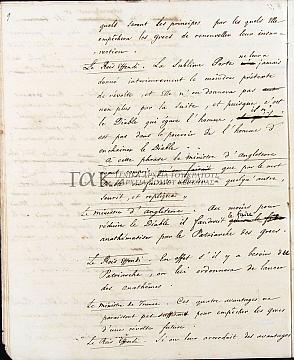 quels seront les principes par les quels Elle
empêchera les grecs de renouveller leur insur-
rection.
Le Reis Effendi. La Sublime Porte ne leur a jamais
donné intérieurement le moindre prétexte
de révolte, et Elle n'en donnera pas
non plus par la suite, et puisque c'est
le Diable qui égare l'homme, il n'y
est pas dans le pouvoir de l'homme d'
enchaîner le Diable.
à cette phrase le ministre d'Angleterre
que par le mot
quelqu'autre
sourit, et répliqua
Le ministre d'Angleterre. Au moins pour
réduire le Diable il faudroit le faire
anathématiser par le Patriarche des grecs.
Le Reis Effendi. En effet s'il y a besoin du
Patriarche, on lui ordonnera de lancer
des anathèmes.
Le ministre de France. Ces quatre avantages ne
paraissent pas suffisants pour empêcher les grecs
d'une révolte future.
Le Reis Effendi. Si on leur accordoit des avantages